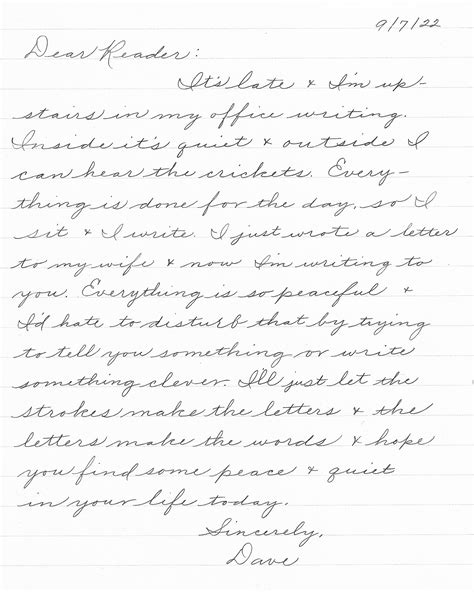 9/7/22
Dear Reader:
It's late & I'm up-
stairs in my office writing.
Inside it's quiet & outside I
can hear the crickets. Every-
thing is done for the day, so I
sit & I write. I just wrote a letter
to my wife & now I'm writing to
you. Everything is so peaceful &
I'd hate to disturb that by trying
to tell you something or write
something clever. I'll just let the
strokes make the letters & the
letters make the words & hope
you find some peace & quiet
in your life today.
Sincerely,
Dave